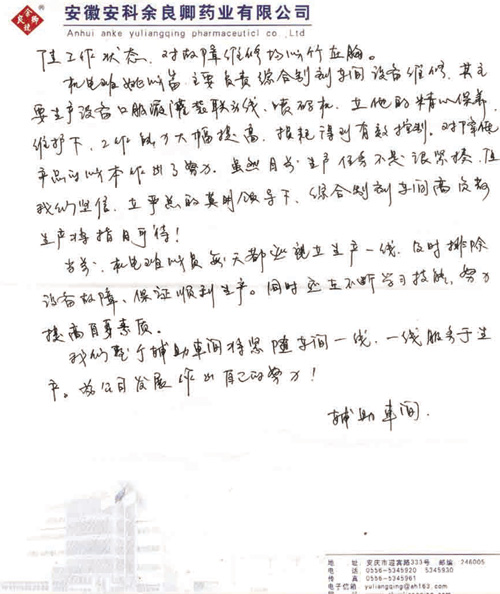 安徽安科余良卿药业有限公司
Anhui anke yuliangqing pharmaceuticl co .,Ltd
佳工作状态，对故障维修均心竹在胸。
机电维修 主要负责综合制剂车间设备维修，其主
要生产设备口服液灌装联动线、喷码机，在他的精心保养
维护下，工作能力大幅提高，损耗得到有效控制。对降低
产品的成本作出了努力。虽然目前生产任务不是很紧凑，但
我们坚信，在严总的英明领导下，综合制剂车间高负荷
生产将指日可待！
当前，机电维修员每天都巡视在生产一线，及时排除
设备故障、保证顺利生产。同时还在不断学习技能，努力
提高自身素质。
我们整个辅助车间将紧随车间一线，一线服务于生
产。为公司发展作出自己的努力！
辅助车间.
地址：安庆市迎宾路333号 邮编：246005
电话：0556-5345920 5345930
传真：0556-5345961
电子信箱：yuliangqing@ah163.com